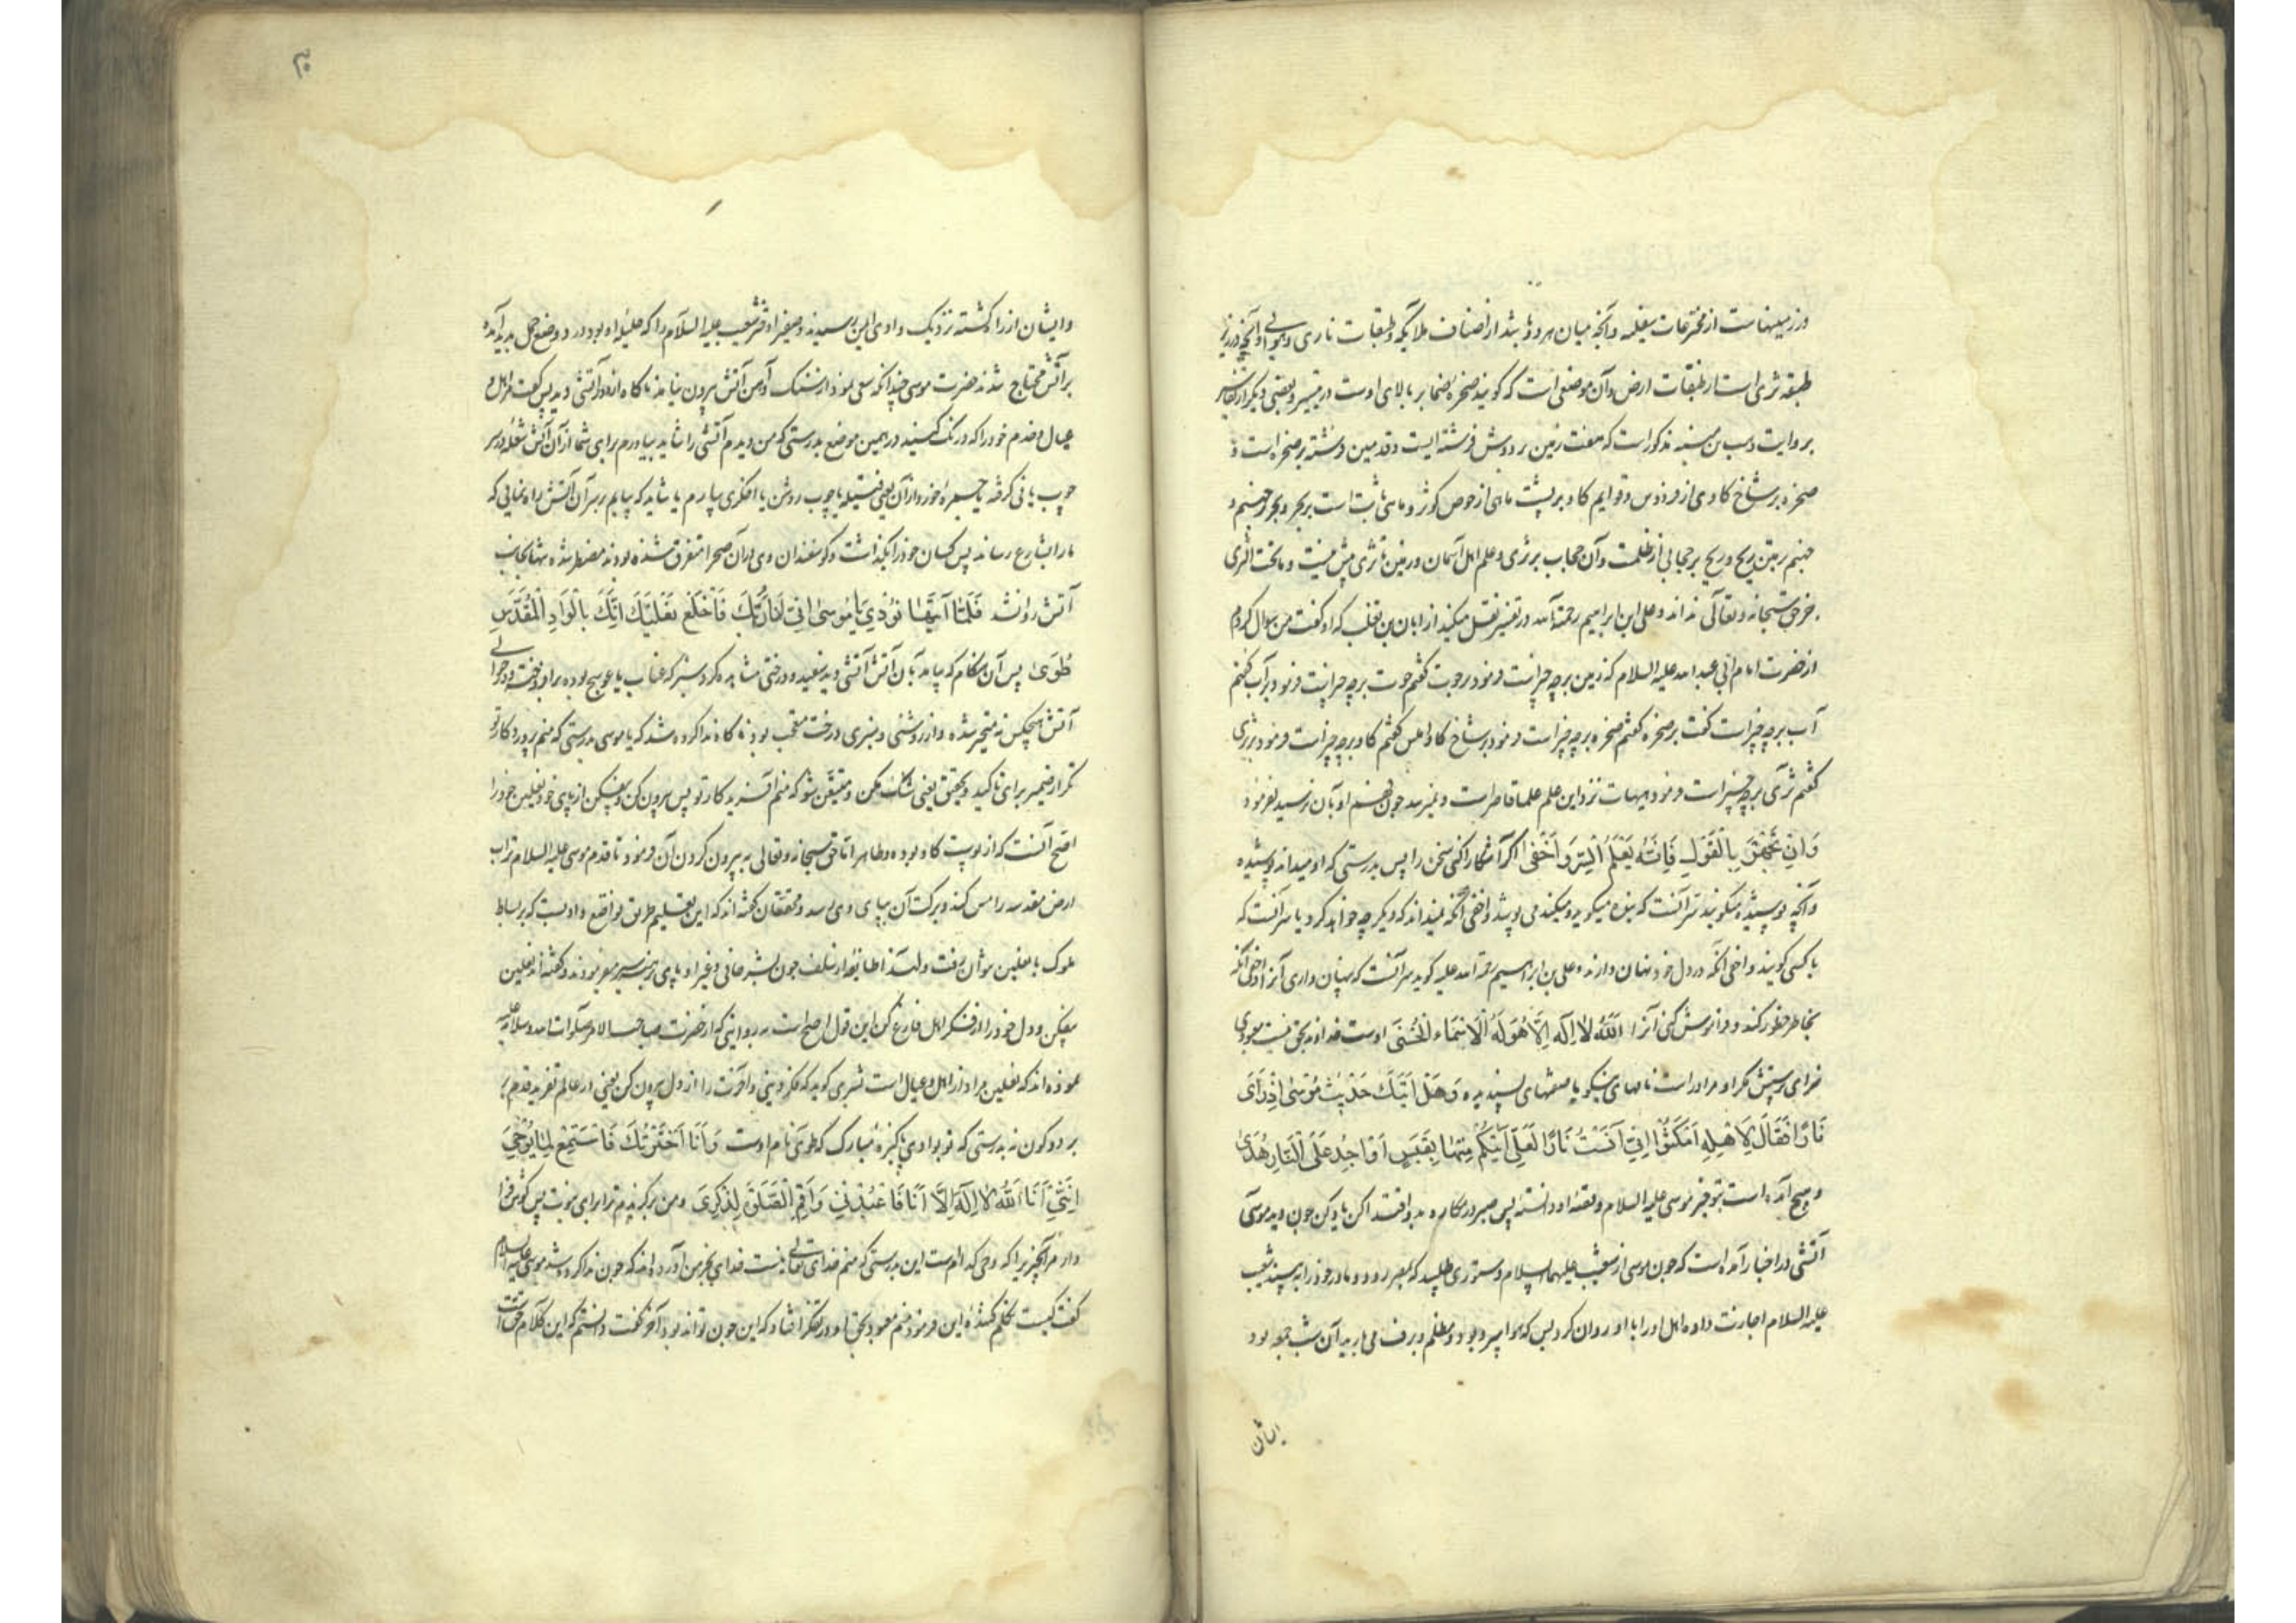 ودر زمینهاست از مخترعات سفلیه وآنچه میان هر دو باشد از اصناف ملائکه وطبقات ناری وهوایی وآنچه در زیر
طبقه ثری است از طبقات ارض وآن موضعی است که کویند صخره صما بر بالای اوست در تیسیر وبعضی دیکر از تفاسیر
بروایت وهب بن منبه مذکور است که هفت زمین بر دوش فرشته ایست وقدمین فرشته بر صخره است و
صخره بر شاخ کاوی از فردوس وقوایم کاو بر پشت ماهی از حوض کوثر وماهی ثابت است بر بحر وبحر بر جهنم و
جهنم بر متن ریح وریح بر حجابی از ظلمت وآن حجاب بر ثری وعلم اهل آسمان وزمین تا ثری پیش نیست وما تحت الثری
جز حق سبحانه وتعالی نداند وعلی ابن ابراهیم رحمة الله در تفسیر نقل میکند از ابان بن تغلب که او کفت من سوال کردم
از حضرت امام ابی عبد الله علیه السلام که زمین بر چه چیز است فرمود بر حوت کفتم حوت بر چه چیز است فرمود بر آب کفتم
آب بر چه چیز است کفت بر صخره کفتم صخره بر چه چیز است فرمود بر شاخ کاو املس کفتم کاو بر چه چیز است فرمود بر ثری
کفتم ثری بر چه چیز است فرمود هیهات نزد این علم علما قاصر است
وَاِنْ تَجْهَرْ بِالْقَوْلِ فَاِنَّهُ يَعْلَمُ الْسِّرَ وَاَخْفٰى اکر آشکارا کنی سخن را پس بدرستی که او میداند پوشیده
وآنچه پوشیده میکویند سر آنست که بنده میکوید ومیکند می پوشد واخفی آنکه نمیداند که دیکر چه خواهد کرد یا سر آنست که
با کسی کویند واخفی آنکه در دل خود نهان دارند وعلی بن ابراهیم رحمة الله علیه کوید سر آنست که پنهان داری آنرا واخفی آنکه
بخاطر خطور کند وفراموش کنی آنرا اَللّٰهُ لاٰ اِلٰهَ اِلاَّ هُوَ لَهُ الْاَسْمَاء الْحُسْنٰى اوست خداوند بحق نیست معبودی
سزای پرستش مکر او مر او راست نامهای نیکو یا صفتهای پسندیده وَهَلْ اَتٰيكَ حَدٖيثُ مُوسٰى اِذْ رَاٰى
نَارًا فَقَالَ لِاَهْلِهِ امْكُثُوا اِنّٖى آنَسْتُ نَارًا لَعَلّٖى آتٖيكُمْ مِنْهٰا بِقَبَسٍ اَوْ اَجِدُ عَلَى الْنَّارِ هُدًى
وهیچ آمده است بتو خبر موسی علیه السلام وقصه او دانسته پس صبر در مکاره بدو اقتدا کن یاد کن چون دید موسی
آتشی در اخبار آمده است که چون موسی از شعیب علیهما السلام دستوری طلبید که بمصر رود ومادر خود را به بیند شعیب
علیه السلام اجازت داده اهل او را با او روان کرد پس که هوا سرد بود ومظلم وبرف می بارید آن شب جمعه بود
ایشان
۳۰
وایشان از راه کشته نزدیک وادی ایمن رسیدند وصفورا دختر شعیب علیه السلام را که حلیله او بود درد وضع حمل پدید آمده
بر آتش محتاج شدند حضرت موسی چندانکه سعی نمود از سنک وآهن آتش بیرون نیامد ناکاه از دور آتشی دید پس کفت مر اهل و
عیال وخدم خود را که درنک کنید در همین موضع بدرستی که من دیدم آتشی را شاید بیاورم برای شما از آن آتش شعله در سر
چوب یا نی کرفته یا جمره افروزد از آن یعنی فتیله یا چوب روشن یا اخکری بیارم یا شاید که بیابم بر سر آن آتش راه نمایی که
ما را بشارع رساند پس کسان خود را بکذاشت وکوسفندان وی در آن صحرا متفرق شده بودند مضطر شده تنها بجانب
آتش روان شد فَلَمّٰا اَتٰيهٰا نُوْدِىَ يٰا مُوسٰى اِنّٖى اَنَا رَبُّكَ فَاخْلَعْ نَعْلَيْكَ اِنَّكَ بِالْوَادِ الْمُقَدَّسِ
طُوًى پس آن هنکام که بیامد بآن آتش آتشی دید سفید ودرختی مشاهده کرد سبز که عناب یا عوسج بوده بر او افروخته ودر حوالی
آتش هیچکس نه متحیر شده واز روشنی وسبزی درخت متعجب بود ناکاه ندا کرده شد که یا موسی بدرستی که منم پروردکار تو
تکرار ضمیر برای تاکید وتحقیق یعنی شک مکن ومتیقن شو که منم آفریدکار تو پس بیرون کن وبیفکن از پای خود نعلین خود را
اصح آنست که از پوست کاو بوده وطاهر اما حق سبحانه وتعالی به بیرون کردن آن فرمود تا قدم موسی علیه السلام تراب
ارض مقدسه را مس کند وبرکت آن بپای وی رسد ومحققان کفته اند که این تعلیم طریق تواضع وادبست که بر بساط
ملوک با نعلین نتوان رفت ولهذا طایفه از سلف چون بشر حافی وغیر او پای برهنه سیر می نمودند وکفته اند نعلین
بیفکن ودل خود را از فکر اهل فارغ کن این قول اصح است به روایتی که از حضرت صاحب الامر صلوات الله وسلامه علیه
نموده اند که نعلین مراد از اهل وعیال است قشیری کوید که فکر دنیی وآخرت را از دل بیرون کن یعنی از عالم تفرید قدم بر
بر دو کون نه بدرستی که تو بوادی پاکیزه مبارک که طوی نام اوست وَاَنَا اخْتَرْتُكَ فَاسْتَمِعْ لِمٰا يُوْحٰى
اِنَّنٖى اَنَا اللّٰهُ لاٰ اِلٰهَ اِلاَّ اَنَا فَاعْبُدْنٖى وَاَقِمِ الْصَّلٰوةَ لِذِكْرٖى ومن برکزیدم ترا برای نبوت پس کوش فرا
دار مر آنچیزیرا که وحی کرده ام است این بدرستی که منم خدای تعالی نیست خدای بجز من آورده اند که چون ندا کرده شد موسی علیه السلام
کفت کیست تکلم کننده این فرمود منم معبود بحق او در تفکر افتاد که این چون تواند بود آخر کفت دانستم که این کلام حقست